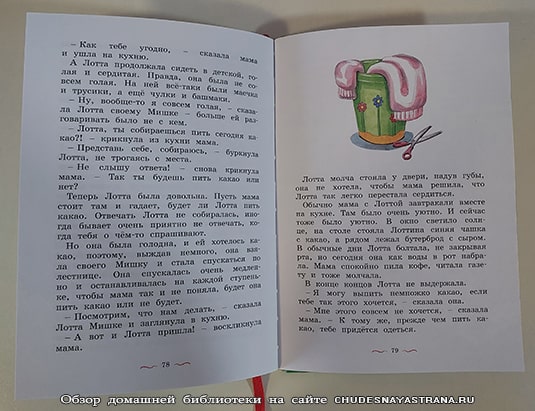 – Как тебе угодно, – сказала мама
и ушла на кухню.
А Лотта продолжала сидеть в детской, го-
лая и сердитая. Правда, она была не со-
всем голая. На ней всё-таки были маечка
и трусики, а ещё чулки и башмаки.
– Ну, вообще-то я совсем голая, – сказа-
ла Лотта своему Мишке – больше ей раз-
говаривать было не с кем.
– Лотта, ты собираешься пить сегодня ка-
као?! – крикнула из кухни мама.
– Представь себе, собираюсь, – буркнула
Лотта, не трогаясь с места.
– Не слышу ответа! – снова крикнула
мама. – Так ты будешь пить какао или
нет?
Теперь Лотта была довольна. Пусть мама
стоит там и гадает, будет ли Лотта пить
какао. Отвечать Лотта не собиралась, ино-
гда бывает очень приятно не отвечать, ко-
гда тебя о чём-то спрашивают.
Но она была голодна, и ей хотелось ка-
као, поэтому, выждав немного, она взя-
ла своего Мишку и стала спускаться по
лестнице. Она спускалась очень медлен-
но и останавливалась на каждой ступень-
ке, чтобы мама так и не поняла, будет она
пить какао или не будет.
– Посмотрим, что нам делать, – сказала
Лотта Мишке и заглянула в кухню.
– А вот и Лотта пришла! – воскликнула
мама.
78
Лотта молча стояла у двери, надув губы,
она не хотела, чтобы мама решила, что
Лотта так легко перестала сердиться.
Обычно мама с Лоттой завтракали вместе
на кухне. Там было очень уютно. И сейчас
тоже было уютно. В окно светило солн-
це, на столе стояла Лоттина синяя чашка
с какао, а рядом лежал бутерброд с сыром.
В обычные дни Лотта болтала, не закрывая
рта, но сегодня она как воды в рот набра-
ла. Мама спокойно пила кофе, читала газе-
ту и тоже молчала.
В конце концов Лотта не выдержала.
– Я могу выпить немножко какао, если
тебе так этого хочется, – сказала она.
– Мне этого совсем не хочется, – сказала
мама. – К тому же, прежде чем пить ка-
као, тебе придётся одеться.
79
Обзор домашней библиотеки на сайте CHUDESNAYASTRANA.RU